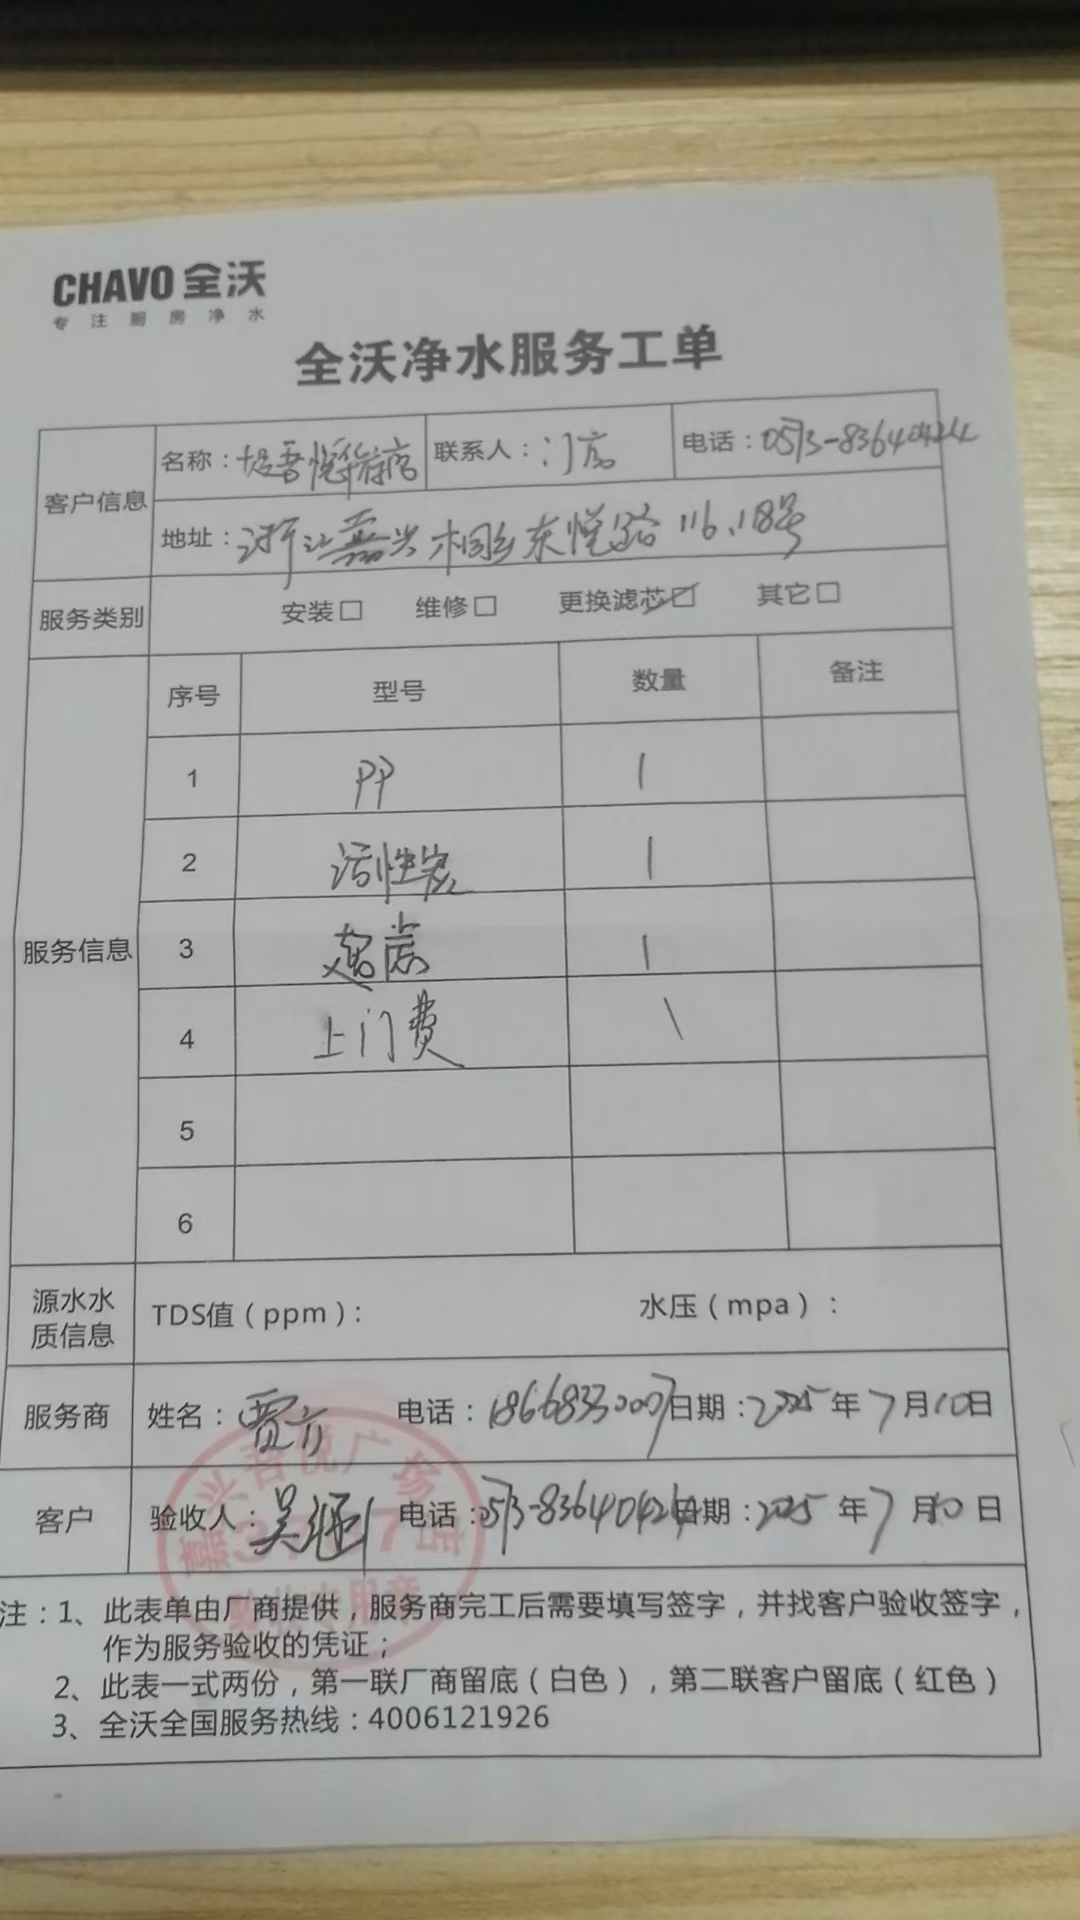 CHAVO 全沃
专注厨房净水
全沃净水服务工单
客户信息
名称: 店 联系人: 门店 电话: 0573-83640424
地址: 浙江嘉兴桐乡东悦路116.118号
服务类别 安装□ 维修□ 更换滤芯☑ 其它□
服务信息
序号 型号 数量 备注
1 PP 1
2 活性炭 1
3 超滤 1
4 上门费 1
5
6
源水水质信息 TDS值(ppm): 水压(mpa):
服务商 姓名: 贾方 电话: 18668330007 日期: 2025年7月10日
客户 验收人: 吴 电话: 0573-83640424 日期: 2025年7月10日
注:1、此表单由厂商提供,服务商完工后需要填写签字,并找客户验收签字,
作为服务验收的凭证;
2、此表一式两份,第一联厂商留底(白色),第二联客户留底(红色)
3、全沃全国服务热线:4006121926